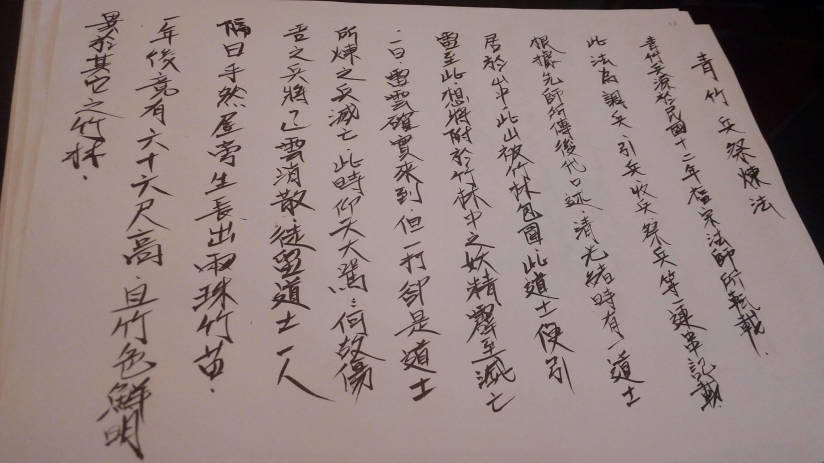 青竹兵祭煉法
青竹兵源於民國十二年 宗法師所記載．
此法為調兵、引兵收兵祭兵等一連串記載．
根據先師後代口述．清光緒時有一道士
居於山中．此山被竹林包圍．此道士便引
雷至此．想將附於竹林中之妖精霹至滅亡
．一日．雷雲確實來到但一打卻是道士
所煉之兵滅亡．此時仰天大罵：何故傷
吾之兵將 雲消散．徒留道士一人
隔日乎然屋旁生長出兩珠竹苗．
一年後竟有六十六尺高．且竹色鮮明
異於其它之竹林．